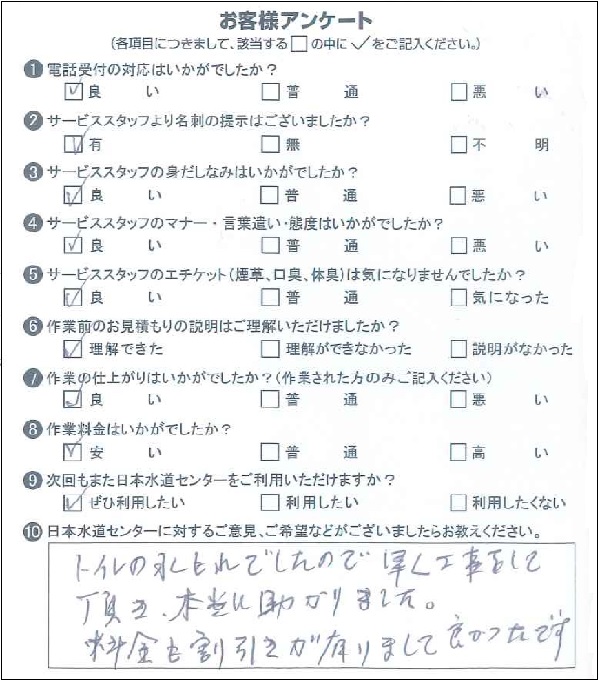 お客様アンケート
(各項目につきまして、該当する□の中に✓をご記入ください。)
❶電話受付の対応はいかがでしたか？
☑良い □普通 □悪い
❷サービススタッフより名刺の提示はございましたか？
☑有 □無 □不明
❸サービススタッフの身だしなみはいかがでしたか？
☑良い □普通 □悪い
❹サービススタッフのマナー・言葉遣い・態度はいかがでしたか？
☑良い □普通 □悪い
❺サービススタッフのエチケット(煙草、口臭、体臭)は気になりませんでしたか？
☑良い □普通 □気になった
❻作業前のお見積もりの説明はご理解いただけましたか？
☑理解できた □理解ができなかった □説明がなかった
❼作業の仕上がりはいかがでしたか？(作業された方のみご記入ください)
☑良い □普通 □悪い
❽作業料金はいかがでしたか？
☑安い □普通 □高い
❾次回もまた日本水道センターをご利用いただけますか？
☑ぜひ利用したい □利用したい □利用したくない
❿日本水道センターに対するご意見、ご希望などがございましたらお教えください。
トイレの水もれでしたので早く工事をして
頂き、本当に助かりました。
料金も割引きが有りまして良かったです